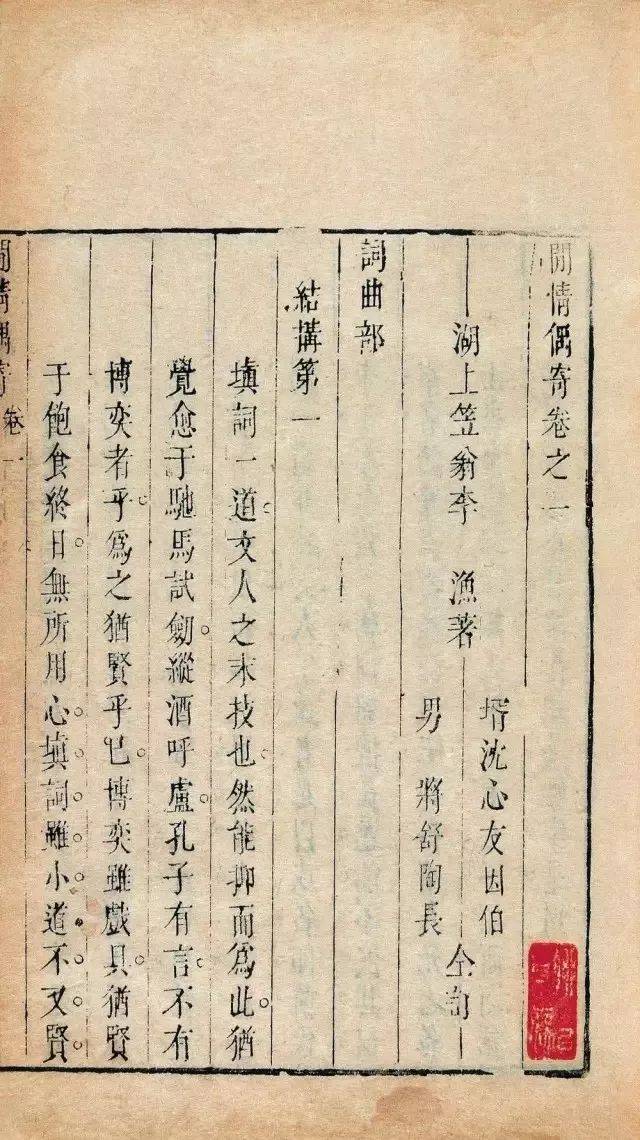 閒情偶寄卷之一
湖上笠翁李　漁著
壻沈心友因伯
男　將舒陶長
仝訂
詞曲部
結搆第一
塡詞一道。文人之末技也。然能抑而爲此。猶
覺愈于馳馬試劒。縱酒呼盧。孔子有言。不有
博奕者乎。爲之猶賢乎已。博奕雖戲具。猶賢
于飽食終日。無所用心。塡詞雖小道。不又賢。
閒情偶寄 卷一